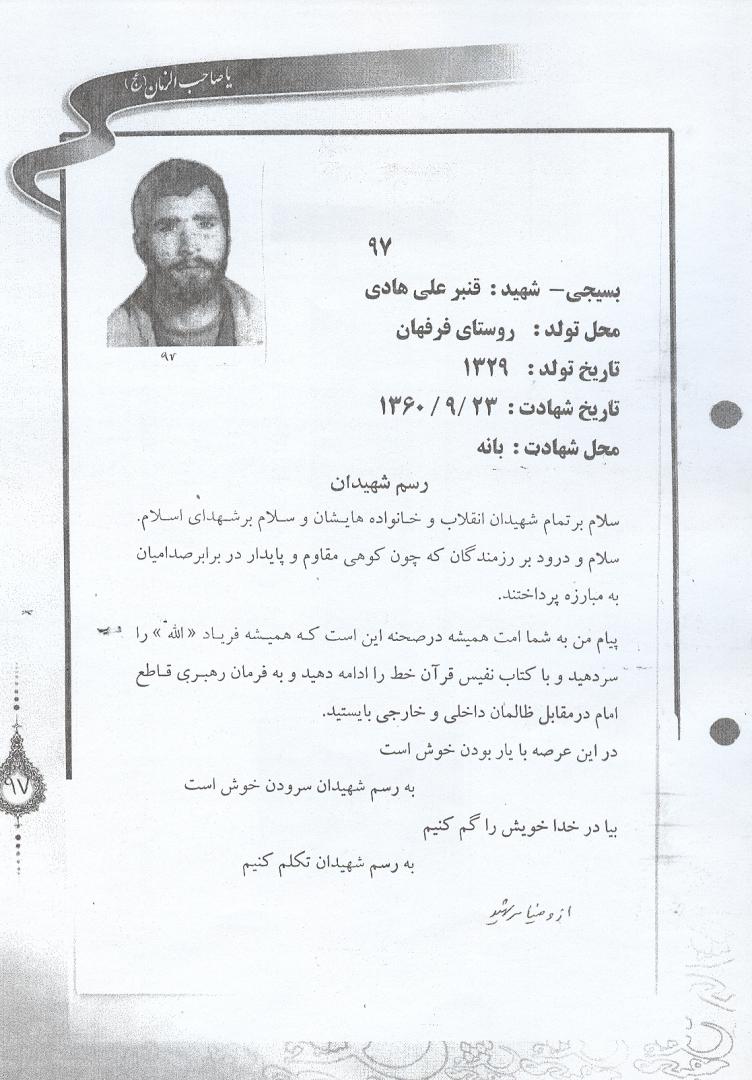 یا صاحب الزمان (عج)
۹۷
۹۷
بسیجی – شهید : قنبر علی هادی
محل تولد : روستای فرفهان
تاریخ تولد : ۱۳۲۹
تاریخ شهادت : ۲۳ /۹ / ۱۳۶۰
محل شهادت : بانه
رسم شهیدان
سلام بر تمام شهیدان انقلاب و خانواده هایشان و سلام بر شهدای اسلام.
سلام و درود بر رزمندگان که چون کوهی مقاوم و پایدار در برابر صدامیان
به مبارزه پرداختند.
پیام من به شما امت همیشه در صحنه این است که همیشه فریاد «الله» را
سر دهید و با کتاب نفیس قرآن خط را ادامه دهید و به فرمان رهبری قاطع
امام در مقابل ظالمان داخلی و خارجی بایستید.
در این عرصه با یار بودن خوش است
به رسم شهیدان سرودن خوش است
بیا در خدا خویش را گم کنیم
به رسم شهیدان تکلم کنیم
۹۷